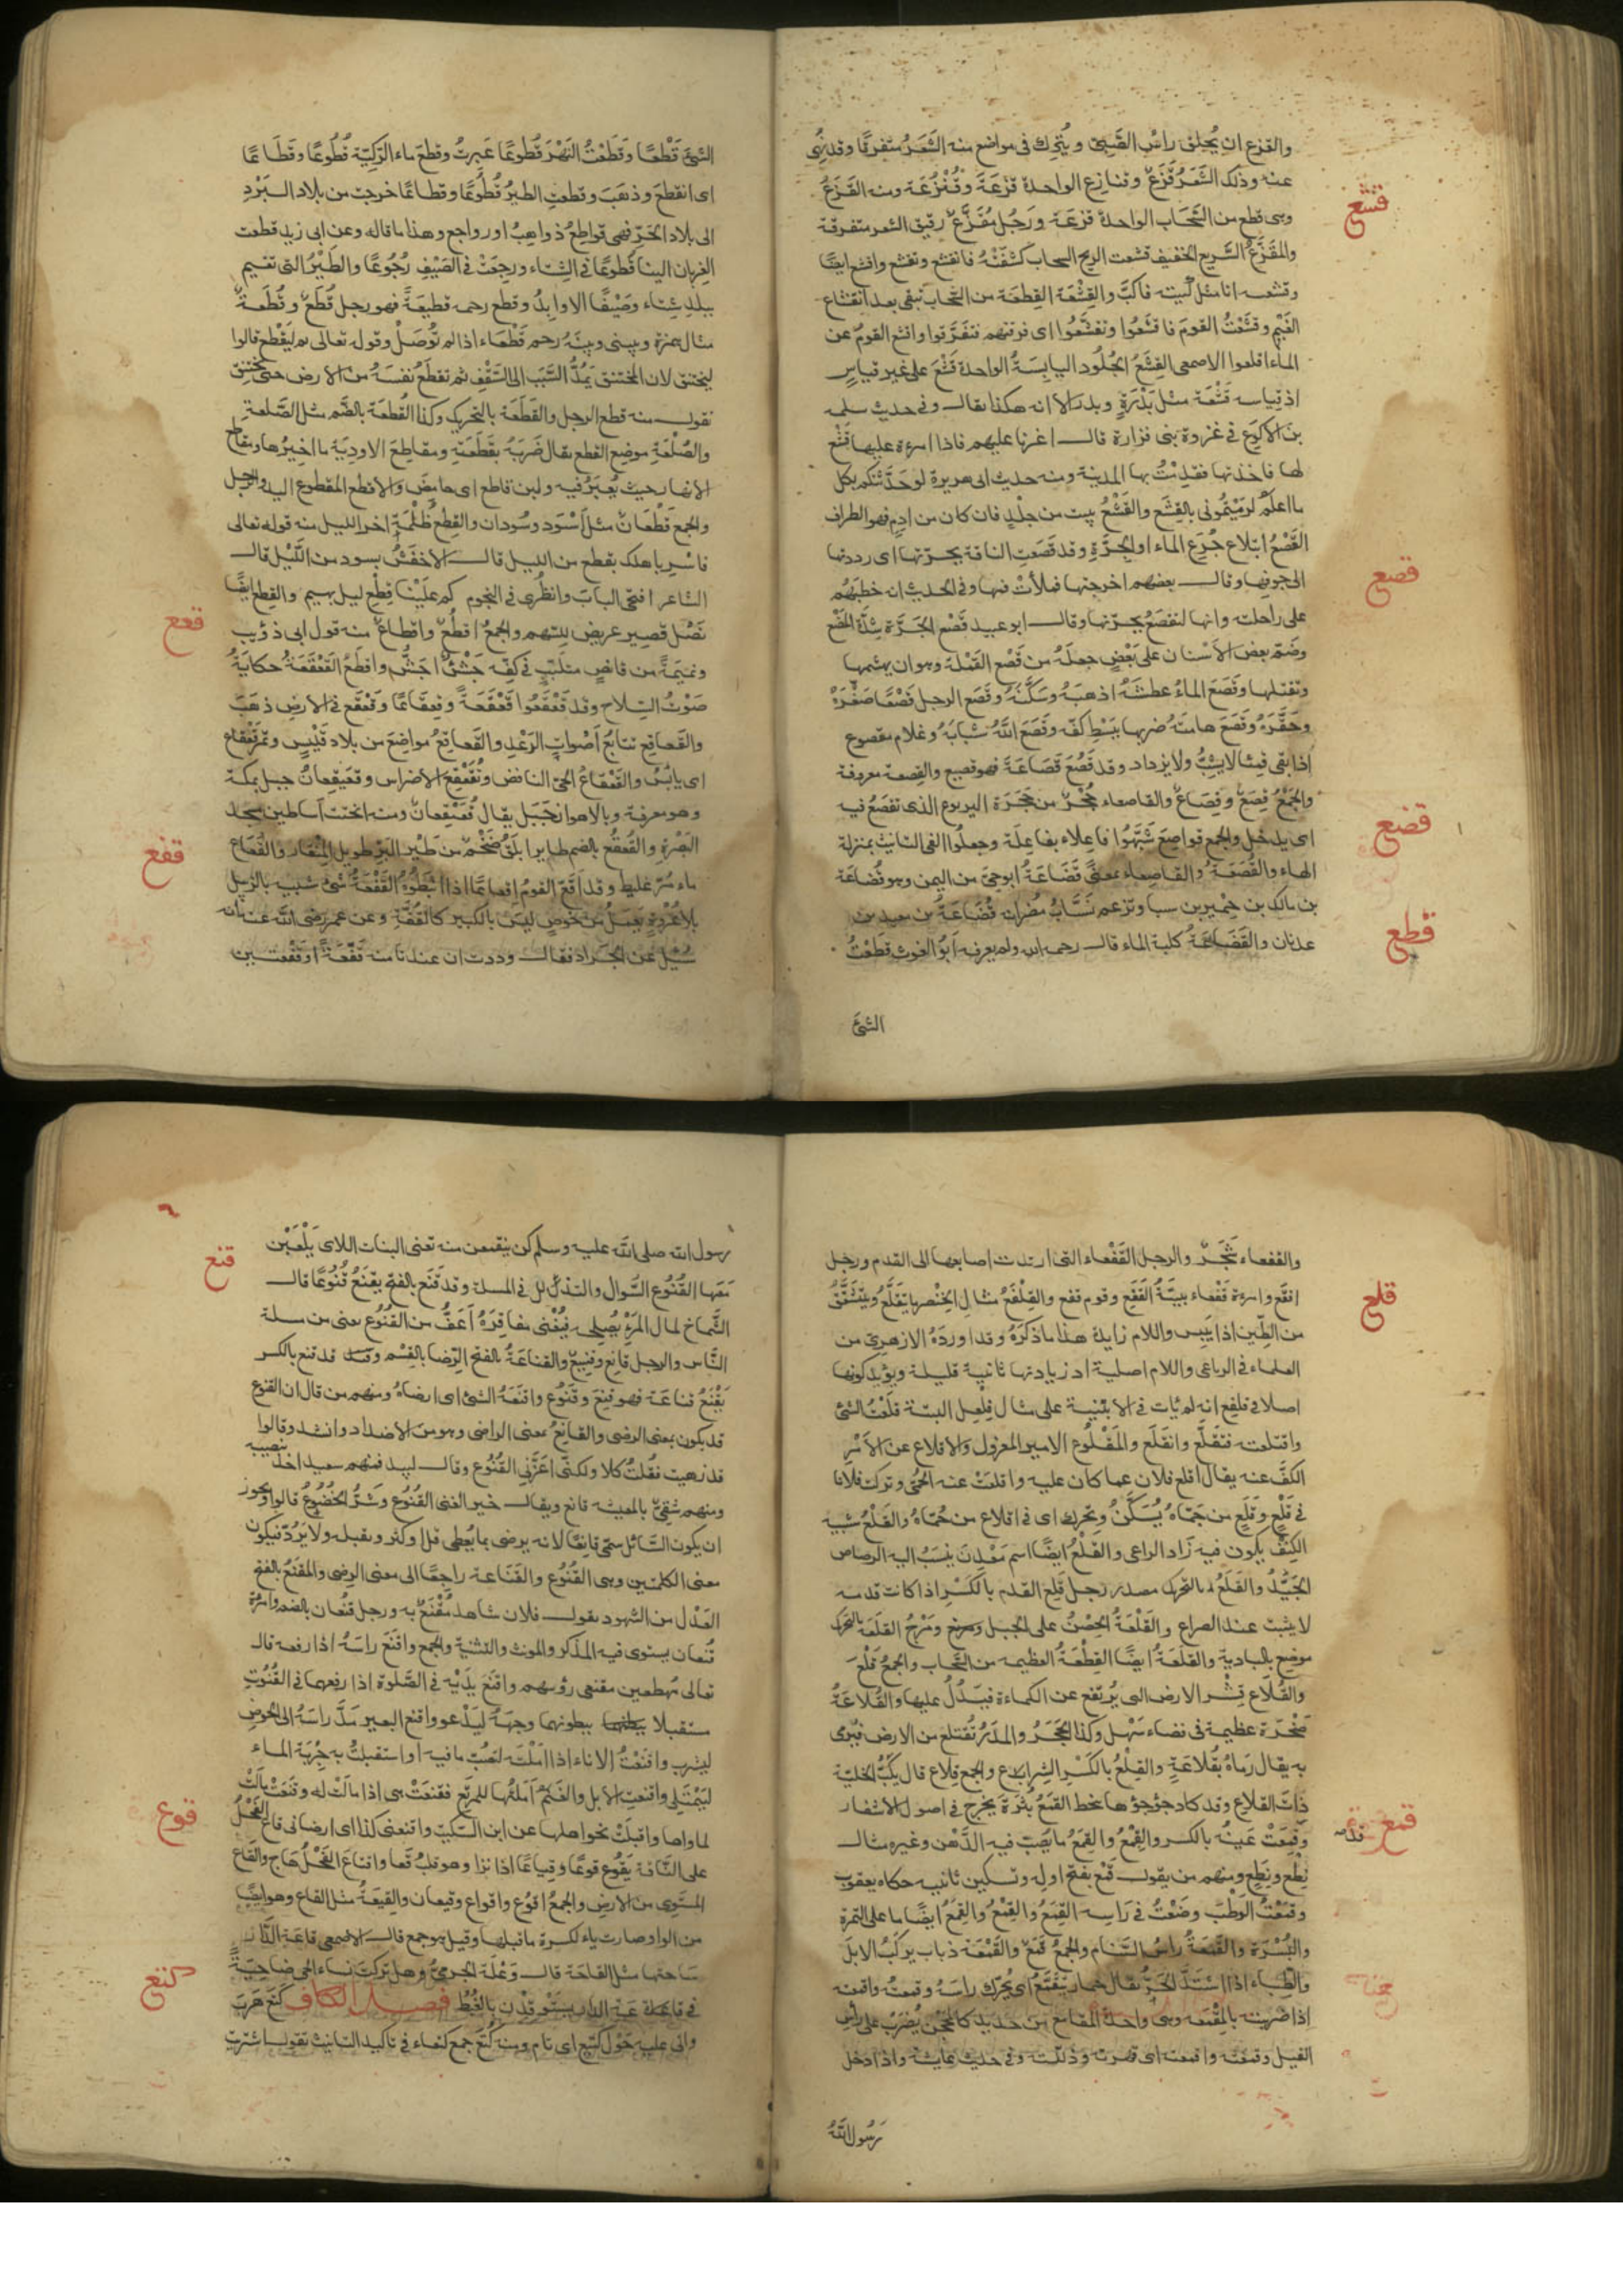 والقزع ان يُحلق راسُ الصَّبِيّ ويُتْرك فى مواضع منه الشَّعَرُ متفرقًا وقد نُهِى
عنه وذلك الشَّعَرُ قَزَعٌ وقنازع الواحدة قزعَة وقُنْزُعَة ومنه القَزَعُ
قشع
وهى قطع من السَّحَاب الواحدة قزعَة ورَجُل مُقَزَّعٌ رقيق الشعر متفرقة
والمقَزَّعُ السَّريع الخفيف قشعت الريح السحاب كشَفَتْهُ فانقشع وتقشع واقشع ايضًا
القِشْعَة القِطعَة من السَّحَاب تبقى بعد انقشاع
الغَيْم وقشَعْتُ القومَ فاقشَعُوا وتقشَّعُوا اى فرقتهم فتفَرَّقوا واقشع القومُ عن
الماء اقلعوا الاصمعى القِشَعُ الجُلُود اليابِسَةُ الواحدة قَشْعٌ على غير قياسٍ
اذ قياسه قَشْعَة مثل بَدْرَةٍ وبدر الا انه هكذا يقال وفى حديث سلمه
بن الاكوع فى غزوة بنى فزارة قال اغرنا عليهم فاذا امرءة عليها قَشْع
لها فاخذتها فقدِمْتُ بها المدينة ومنه حديث ابى هريرة لو حَدَّثتكم بكل
ما اعلمُ لرَمَيْتُمُونى بالقِشَع والقَشْعُ بيت من جِلْدٍ فان كان من ادمٍ فهو الطراف
القَصْعُ ابتلاع جُرَع الماء او الجِرَّةِ وقد قَصَعَتِ الناقة بجرّتها اى رددتها
قصع
الى جوفها وقال بعضهم اخرجتها فملأتْ فاها وفى الحديث انه خطبَهُم
على راحلته وانها لتقصَعُ بجرّتها وقال ابو عبيد قَصْع الجَرّة شِدَّة المضْغ
وضَمّ بعض الاَسْنان على بَعْضٍ جعلَهُ من قَصْع القَمْلة وهو ان يهشمها
وتقتلها وقَصَعَ الماءُ عطشَهُ اذهبَهُ وسَكَّنَهُ وقَصَع الرجل قَصْعًا صَغَّرَهُ
وحَقَّرَهُ وقَصَعَ هامتَهُ ضربها ببَسْطِ كفّه وقَصَعَ اللهُ شبابَهُ وغلام مقصوع
اذا بقى قميئا لا يشِبُّ ولا يزداد وقد قَصُعَ قَصَاعَةً فهو قصيع والقصعه معروفة
والجَمْعُ قِصَعٌ وقِصَاعٌ والقاصعاء جُحْرٌ من جِحَرَة اليربوع الذى تقصَعُ فيه
قضع
اى يدخل والجمع قواصِعَ شَبَّهُوا فاعِلاء بفاعِلَة وجعلُوا الفى التانيث بمنزلة
الهاء والقُصَعَةُ والقاصعاء بمعنًى قُضَاعَةُ ابو حىّ من اليمن وهو قُضَاعَة
بن مالك بن حِمْيَر بن سبا وتزعم نُسَّابُ مُضَر انه قُضَاعَةُ بن معد بن
قطع
عدنان والقُضَاعَةُ كلبة الماء قال رحمه الله ولم يعرفه ابُو الغوث قَطَعْتُ
الشئَ
الشئَ قَطْعًا وقَطَعْتُ النَهْرَ قُطوعًا عَبرتُ وقطعَ ماء الرَكِيّة قُطُوعًا وقَطَاعًا
اى انقطعَ وذهَبَ وقطعتِ الطيرُ قُطُوعًا وقطاعًا خرجت من بلاد البَرْدِ
الى بلاد الحَرّ فهى قواطِعُ ذواهِبُ او رواجع وهذا ما قاله وعن ابى زيد قطعت
الغِربان الينا قُطوعًا فى الشِتاء ورجعَتْ فى الصَيْفِ رُجُوعًا والطَيْرُ التى تقيم
ببلدٍ شتاء وصَيْفًا الاوابِدُ وقطع رحمه قطيعَةً فهو رجل قُطَعٌ وقُطَعةٌ
مثال همزة وبينى وبينَهُ رحم قَطْعَاء اذا لم تُوصَلْ وقوله تعالى ثم ليَقْطع قالوا
ليختنق لان المختنق يَمُدُّ السَّبَبَ الى السَّقْفِ ثم تقطَعُ نفسَهُ من الارض حتى يختنِق
نقول منه قطع الرجل والقَطَعَة بالتحريك وكذا القُطعَة بالضم مثل الصَّلعةِ
والصُّلعَةِ موضِع القَطع يقال ضَرَبَهُ بقَطَعَتِهِ ومقاطِعَ الاودِيَة مآخيرُها ومقاطع
الانهار حيث يُعبَرُ فيه ولبن قاطع اى حامض والاقطع المقطوع اليد والرجل
والجمع قُطْعَانٌ مثل اَسْوَد وسُودان والقِطعُ ظُلْمَة اخر الليل منه قوله تعالى
فاسْرِ باهلك بقطع من الليل قال الاخفَش بسود من اللَّيْل قال
الشاعر افتحى البابَ وانظُرى فى النجوم كم علَيْنا قِطْع ليل بهيم والقِطع ايضًا
قعع
نَصْل قصير عريض للسّهم والجمع اقطُعٌ واقطاعٌ منه قول ابى ذؤيب
ونميمَةً من قانصٍ متلَبّبٍ فى كفّه جَشْءٌ اجشُّ واقطَعُ القَعْقَعَةُ حكايَةُ
صَوْتُ السّلاح وقد قعْقَعُوا قَعْقَعَةً وقعقاعًا وقَعْقَع فى الارض ذهَبَ
والقَعاقِع تتابُع اَصْوات الرَعْدِ والقَعاقِعُ مواضِعَ من بلاد قَيْسٍ وتمر قَعْقاع
اى يابسٌ والقَعْقاعُ الحمّى النافض وتُقعْقِعُ الاضراس وقعَيقِعانُ جبل بمكة
وهو معرفة وبالاهواز جَبَل يقال قُعَيْقِعانُ ومنه انحتت اساطين مسجد
البَصْرةِ والقُعقُع بالضم طاير ابلَقُ ضَخْم من طَيْر البَرّ طويل المِنْقار والقُعَاع
قفع
ماء مُرّ غليظ وقد اقعّ القومُ اقعاعًا اذا انبَطُوهُ القَفْعَةُ شئ شبيه بالزبيل
بلا عُرْوةٍ يُعمَلُ من خوصٍ ليسَ بالكبير كالقُفَّةِ وعن عمر رضى الله عنه انه
سُئِلَ عن الجَراد فقال وددت ان عندنا منه قَفْعَةً او قفعتين
والقفعاء شَجَرٌ والرجل القَفْعاء التى ارتدت اصابعها الى القدم ورجل
قلع
اقفَع وامرءة قَفْعاء بيِّنَةُ القَفَعِ وقوم قفع والقِلْفَعُ مثال الخِنْصِر ما يَتَقلَّعُ ويتشَقَّقُ
من الطِّين اذا يَبِس واللام زايدة هذا ما ذكرَهُ وقد اورَدَهُ الازهرى من
العلماء فى الرباعى واللام اصلية اذ زيادتها ثانية قليلة ويؤيد كونها
اصلا فى قلفع انه لم يات فى الابنية على مثال فِلعِل البتة قلَعْتُ الشئ
واقتلعته فتقلَّع وانقلَع والمَقْلُوع الامير المعزول والاقلاع عن الاَمْرِ
الكَفّ عنه يقال اقلع فلان عما كان عليه واقلعَتْ عنه الحُمّى وتركت فلانا
فى قَلْعٍ وقَلَعٍ من حُمّاهُ يُسَكَّنُ ويُحرّك اى فى اقلاع من حُمّاهُ والقَلْعُ شبيه
الكِنْف يكون فيه زاد الراعى والقَلْعُ ايضًا اسم مَعْدِنَ ينسَبُ اليه الرصاص
الجَيّدُ والقَلَعُ بالتحريك مصدر رجل قَلِع القدم بالكَسْر اذا كانت قدمه
لا يثبت عند الصراع والقَلْعَةُ الحِصْنُ على الجبل ومَرْجُ القَلَعَة بالتحرك
موضِع بالبادية والقَلَعَةُ ايضًا القِطْعَةُ العظيمه من السَّحاب والجمعُ قَلَعٌ
والقُلَاع قِشْر الارض الذى يُرتَفع عن الكماءة فيَدُلُّ عليها والقُلَاعَةُ
صَخْرَة عظيمة فى فضاء سَهْل وكذا الحجَرُ والمدَرُ تُقتلع من الارض فيُرمى
به يقال رَماهُ بقُلاعَةٍ والقِلْعُ بالكَسْر الشِراعُ والجمع قِلاع قال يَكُبُّ الخليّة
ذات القلاعِ وقد كاد جؤجؤها ينحط القَمَعُ بَثْرَة يخرج فى اصول الاشفار
قمع
وقَمِعَتْ عَينُه بالكسر والقِمْعُ والقِمَعُ ما يُصَبّ فيه الدَّهْن وغيره مثال
نِطْع ونِطَع ومنهم من يقول قَمْع بفتح اوله وتسكين ثانيه حكاه يعقوب
وقمَعْتُ الوَطْبَ وضَعْتُ فى رَاسِه القِمَعُ والقِمْعُ والقِمَعُ ايضًا ما على التمرة
والبُسْرَة والقَمَعَةُ راسُ السَّنام والجمعُ قَمَعٌ والقَمَعَة ذباب يركبُ الابلَ
والظِّباء اذا اشتَدَّ الحَرُّ يقال حمار يتقَمَّعُ اى يُحرّك راسَهُ وقمعتُه واقمعته
اذا ضربته بالمِقْمَعَه وهى واحدة المقامِع من حديد كالمِحْجَن يُضْرَبُ على راس
الفيل وقمعته واقمعته اى قهرته وذلّلته وفى حديث عايشة واذا دخل
رَسُول اللهِ
رسول الله صلى الله عليه وسلم كن ينقمعن منه تعنى البنات اللاى يَلْعَبْن
قنع
مَعَها القُنُوع السُّوال والتذلّل فى المسلة وقد قَنَع بالفتح يقنَعُ قُنُوعًا قال
الشَّمّاخ لمال المَرْءِ يُصلِحُه فيُغنى مفاقِرَهُ اَعَفُّ من القُنُوع يعنى من مسلة
النّاس والرجل قانِع وقنِيعٌ والقناعَةُ بالفتح الرّضا بالقِسْم وقد قنع بالكسر
يَقْنَعُ قناعَة فهو قنِعٌ وقَنُوع واقنَعَهُ الشئ اى ارضاهُ ومنهم من قال ان القنوع
قد يكون بمعنى الرضى والقانِعُ بمعنى الراضى وهو من الاضداد وانشد وقالوا
قد زهيت فقلتُ كلا ولكنّى اعَزَّنى القُنُوع وقال لبيد فمنهم سعيد اخذ بنصيبه
ومنهم شقىٌّ بالمعيشه قانع ويقال خير الغنى القُنُوع وشرُّ الخُضُوعُ قالوا ويجوز
ان يكون السَّائل سمّى قانِعًا لانه يرضى بما يُعطى قلّ او كثر ويقبله ولا يَرُدّ فيكون
معنى الكلمتين وهى القُنُوع والقَنَاعة راجعًا الى معنى الرِضى والمقنَعُ بالفتح
العَدْل من الشهود يقول فلان شاهد مَقْنَعٌ به ورجل قُنعان بالضم وامرءة
قُنعان يستوى فيه المذكر والمونث والتثنية والجمع واقنَع راسَهُ اذا رفعه قال
تعالى مُهطعين مقنعى رؤسهم واقنَع يدَيْه فى الصَّلوة اذا رفعهما فى القُنُوتِ
مستقبلا ببطونهما وجهَهُ ليَدْعو واقنع البعير مَدَّ راسَهُ الى الحوض
ليشرب واقنَعْتُ الاناء اذا اَمَلْتَه لتصُبّ ما فيه او استقبلتَ به جِرْيَة الماء
ليمْتَلى واقنعت الابل والغَنَمَ اَملتُها للمرتع فقنعَتْ هى اذا مالَتْ له وقنَعَتْ مالَتْ
قوع
لماواها واقبلَتْ نحو اهلها عن ابن السّكيت واقنعنى كذا اى ارضانى قاع الفَحْلُ
على النَّاقة يَقُوع قوعًا وقياعًا اذا نزا وهو قلب قعا واقتاعَ الفَحْلُ هَاج والقَاع
المستَوِى من الارض والجمعُ اقوُع واقواع وقيعان والقِيعَةُ مثل القاع وهو ايضًا
من الواو صارت ياء لكسرة ما قبلها وقيل هو جمع قال الاصمعى قاعَة الدّار
كتع
سَاحتها مثل القاحَة قال وَعْلَة الجرمىُّ وهل تركتَ نساء الحى ضاحِيَةً
فى قاعة الدار يستوقِدْن بالغُبُطِ فصل الكاف كَتَعَ هَرَبَ
واتى عليه حَوْل كتيع اى تام ومنه كُتَع جمع كتعاء فى تاكيد التانيث تقول اشتريت